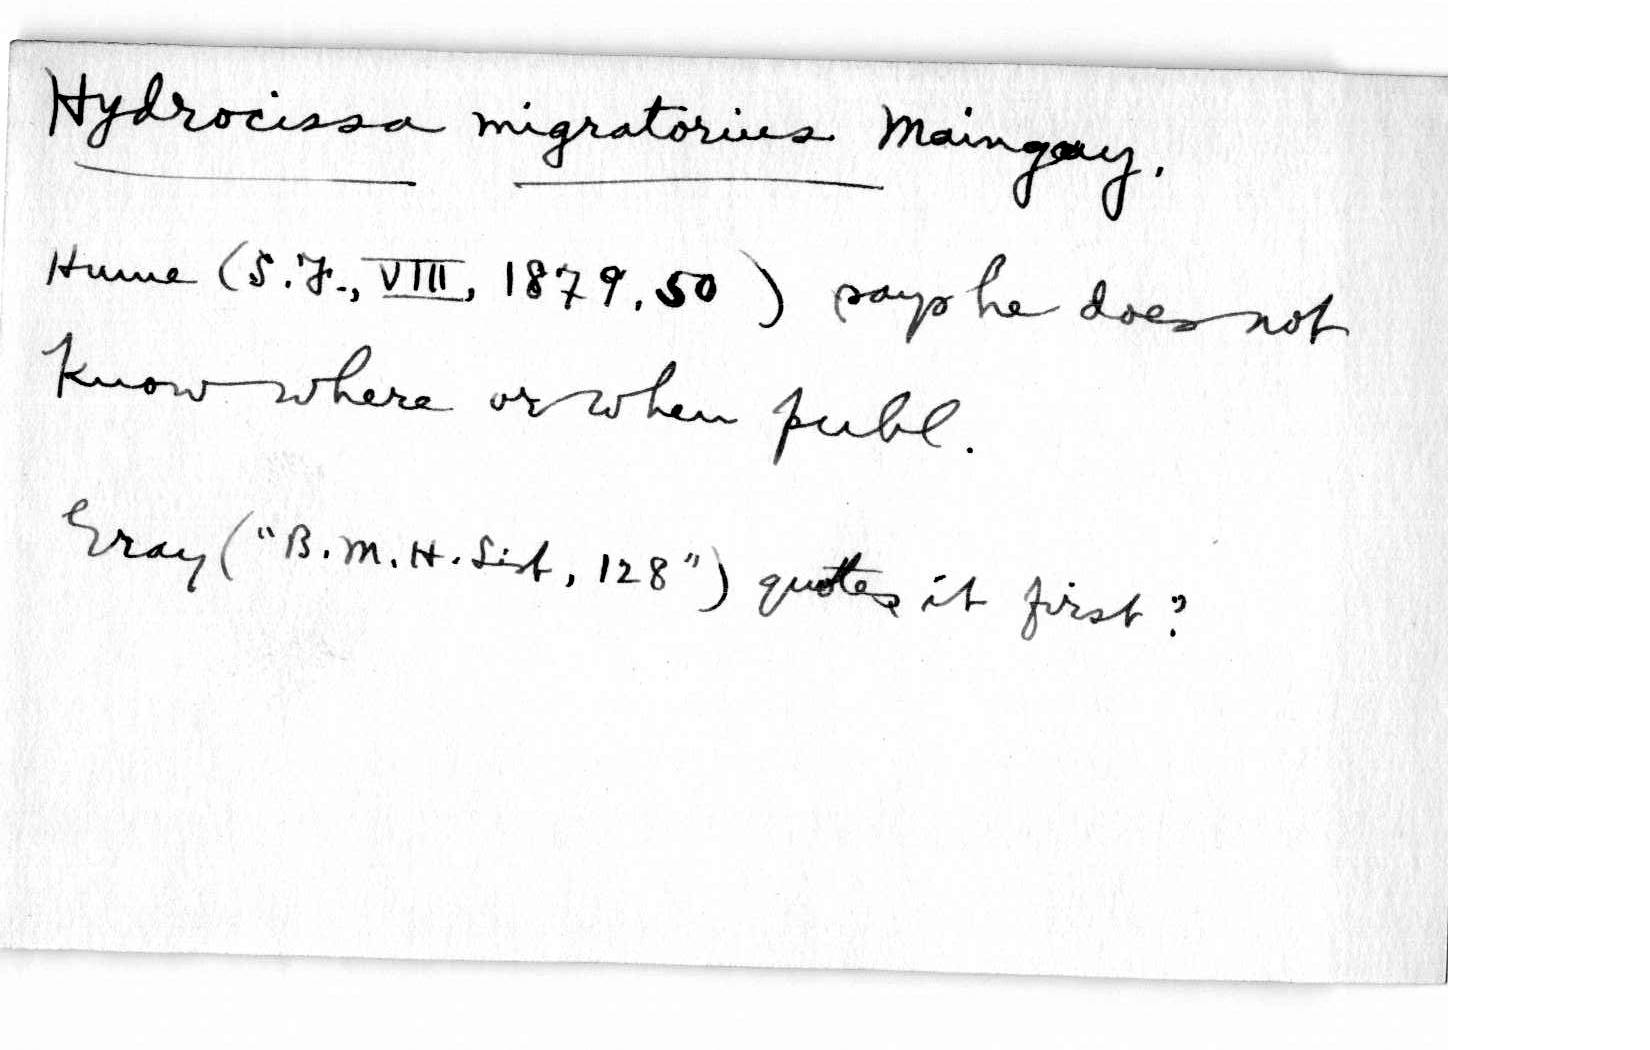 Hydrocissa migratorius Maingay.
Hume (S.F., VIII, 1879, 50) says he does not
know where or when publ.
Gray ("B.M.H. List, 128") quotes it first?